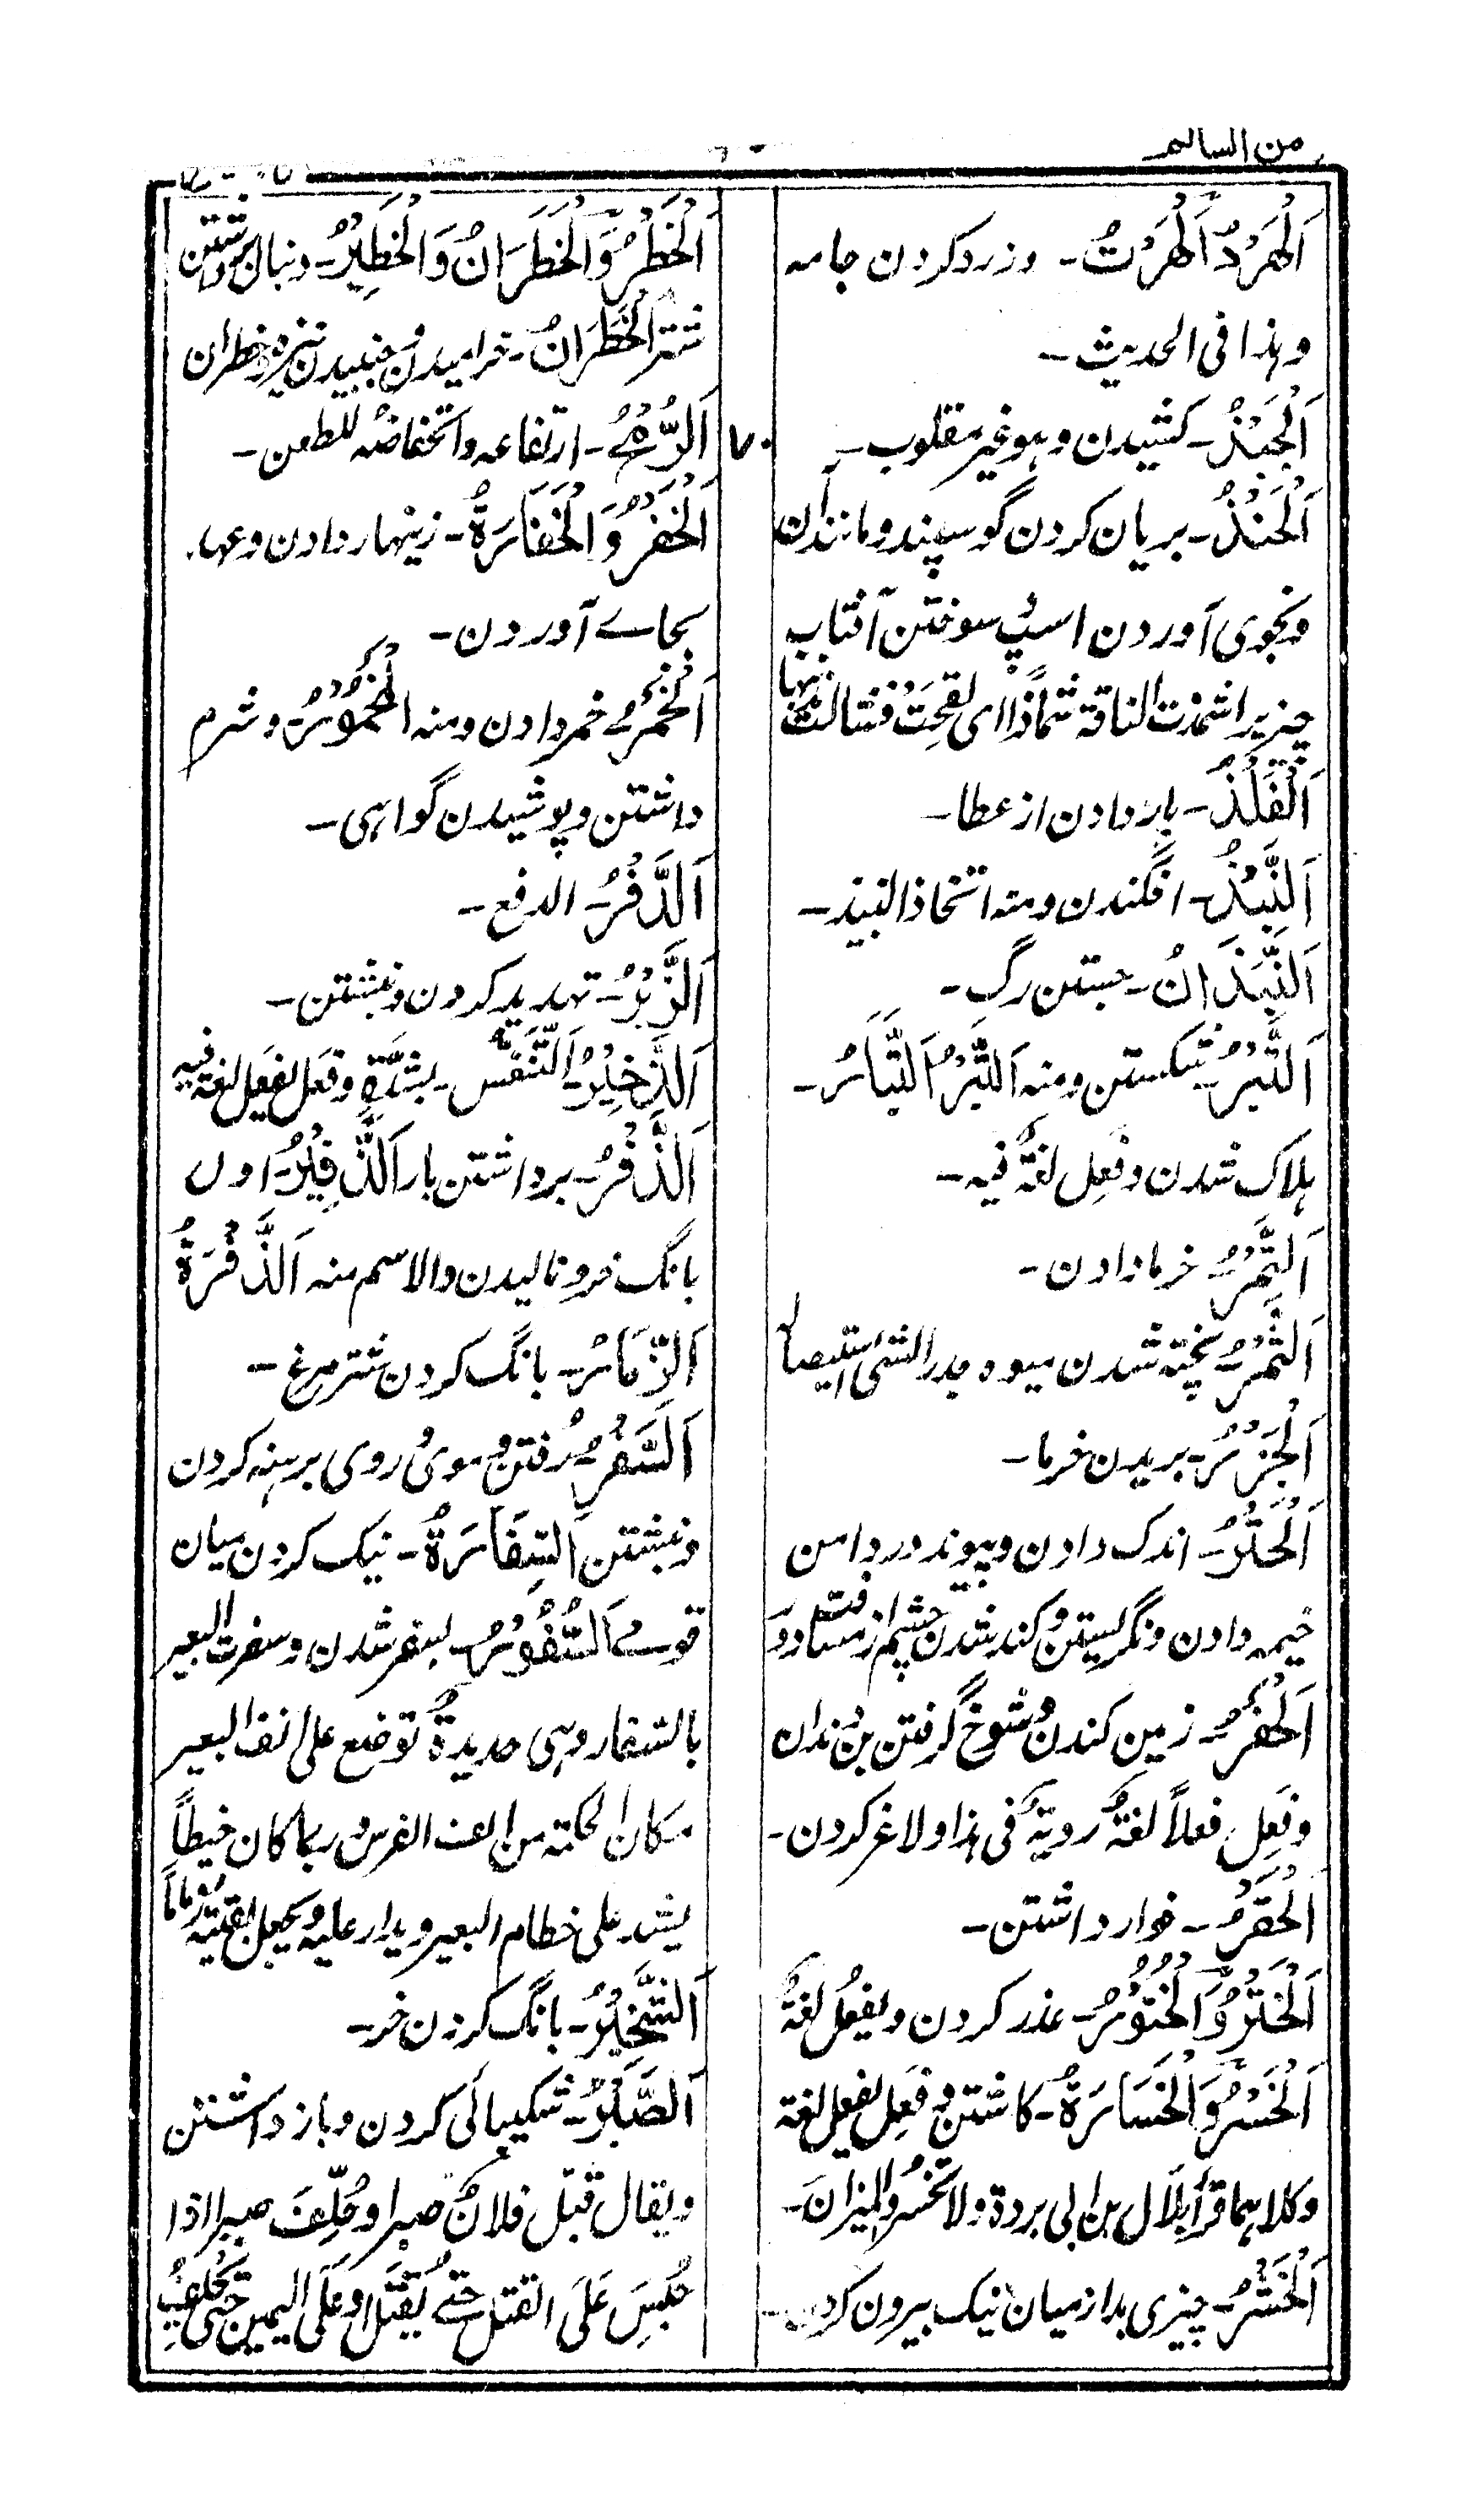 من السالم
اَلْهَرْدُ اَلْهَرْتُ۔ و زرد کردن جامه
وہذا فی الحدیث۔
اَلْجَبْذُ۔ کشیدن وہو غیر مقلوب۔
اَلْحَنْذُ۔ بریان کردن گوسپند و مانند آن
و بخوی آوردن اسپ و سوختن آفتاب
چیزیرا شمذت الناقة شماذا ای لقحت فشالت ذنبہا
اَلْفَلْذُ۔ پارہ دادن از عطا۔
اَلنَّبْذُ۔ افگندن ومنه اتخاذ النبیذ۔
اَلنَّبَذَانُ۔ جستن رگ۔
اَلتَّبْرُ۔ شکستن ومنه اَلتِّبْرُ اَلتَّبَارُ۔
ہلاک شدن وفَعِل لغةٌ فیہ۔
اَلتَّمْرُ۔ خرما دادن۔
اَلثَّمْرُ۔ پختہ شدن میوہ
اَلْجَزْرُ۔ بریدن خرما۔
اَلْحَتْرُ۔ اندک دادن و پیوند در دامن
خیمہ دادن و نگریستن و کند شدن چشم از
اَلْحَفْرُ۔ زمین کندن و شوخ گرفتن بن دندان
وفَعِل فعلاً لغةٌ رویةٌ فی ہذا ولاغر کردن۔
اَلْحَقْرُ۔ خوار داشتن۔
اَلْخَتْرُ وَالْخُتُوْرُ۔ عذر کردن ویفعُل لغةٌ
اَلْخَسْرُ وَالْخَسَارَةُ۔ کاشتن وفَعِل یفعل لغة
وکلاہما قرأ بلال بن ابی بردة ولا تخسروا المیزانَ۔
اَلْخَشْرُ۔ چیزی بد از میان نیک بیرون کردن۔
۷۰
اَلْخَطْرُ وَالْخَطَرَانُ وَالْخَطِیْرُ۔ دنبال برداشتن
شتر اَلْخَطَرَانُ۔ خرامیدن و جنبیدن نیزہ وخطران
اَلرُّمْحِ۔ ارتفاعہ وانخفاضہ للطعن۔
اَلْخَفْرُ وَالْخَفَارَةُ۔ زینہار دادن وعہد
بجاے آوردن۔
اَلْخَمْرُ۔ خمر دادن ومنه اَلْمَخْمُوْرُ۔ و شرم
داشتن و پوشیدن گواہی۔
اَلدَّفْرُ۔ الدفع۔
اَلزَّبْرُ۔ تہدید کردن ونبشتن۔
اَلزَّخِیْرُ۔ اَلتَّنَفُّسُ بشِدَّةٍ وفَعَل یفعَل لغةٌ فیہ
اَلزَّفْرُ۔ برداشتن بار اَلزَّفِیْرُ۔ اول
بانگ خر و نالیدن والاسم منه اَلزَّفْرَةُ
اَلزِّمَارُ۔ بانگ کردن شتر مرغ۔
اَلسَّفْرُ۔ رُفتن و موی و روی برہنہ کردن
ونبشتن اَلسِّفَارَةُ۔ نیک کردن میان
قومے اَلسُّفُوْرُ۔ بسفر شدن وسفرت البعیر
بالسفار وہی حدیدةٌ توضع علی انف البعیر
مکان الحکمة من انف الفرس وربما کان خیطاً
یشد علی خطام البعیر ویدار علیہ ویجعل بقیتہ زماماً
اَلشَّخِیْرُ۔ بانگ کردن خر۔
اَلصَّبْرُ۔ شکیبائی کردن وباز داشتن
ویقال قتل فلانٌ صبرا وحُلِّفَ صبرا اذا
حُبِسَ عَلَی القتل حتّے یُقْتَل اوعَلَی الیمین حتی یحلف